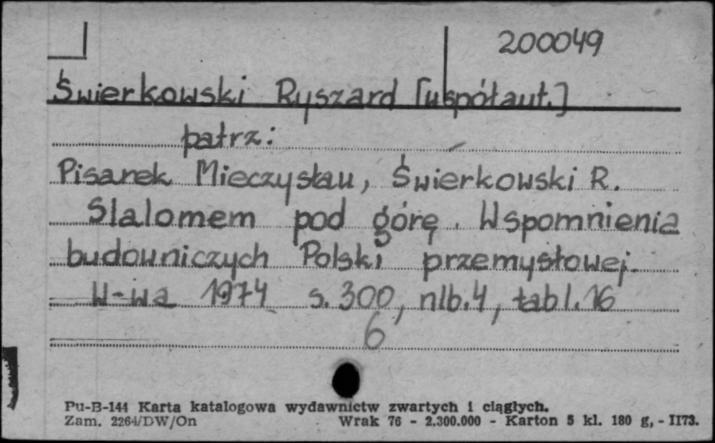 200049
Świerkowski Ryszard [współaut.]
patrz:
Pisarek Mieczysław, Świerkowski R.
Slalomem pod górę. Wspomnienia
budowniczych Polski przemysłowej.
W-wa 1974 s. 300, nlb. 4, tabl. 16
6
Pu-B-144 Karta katalogowa wydawnictw zwartych i ciągłych.
Zam. 2264/DW/On Wrak 76 - 2.300.000 - Karton 5 kl. 180 g, - II73.